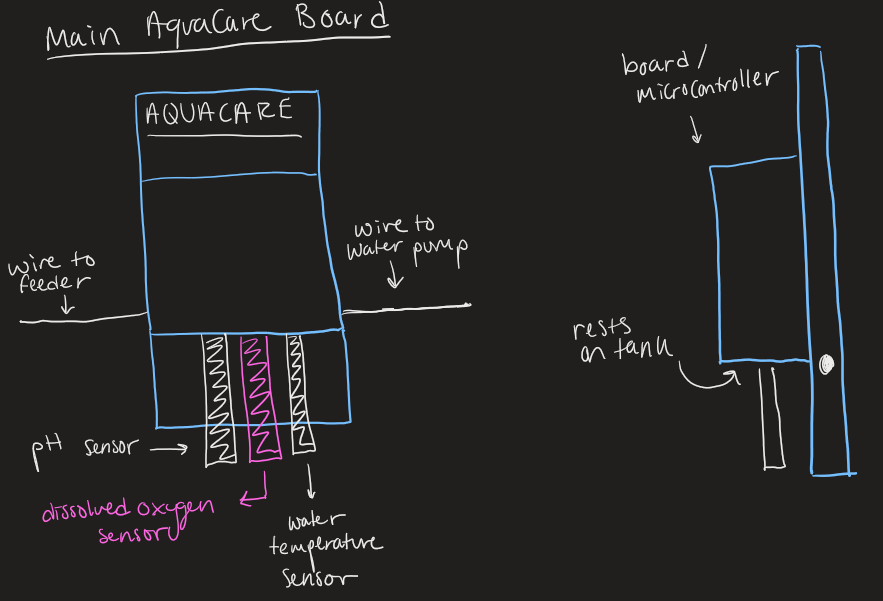 Main AquaCare Board
AQUACARE
wire to
feeder
wire to
water pump
pH sensor
dissolved oxygen
sensor
water
temperature
sensor
board/
microcontroller
rests
on tank